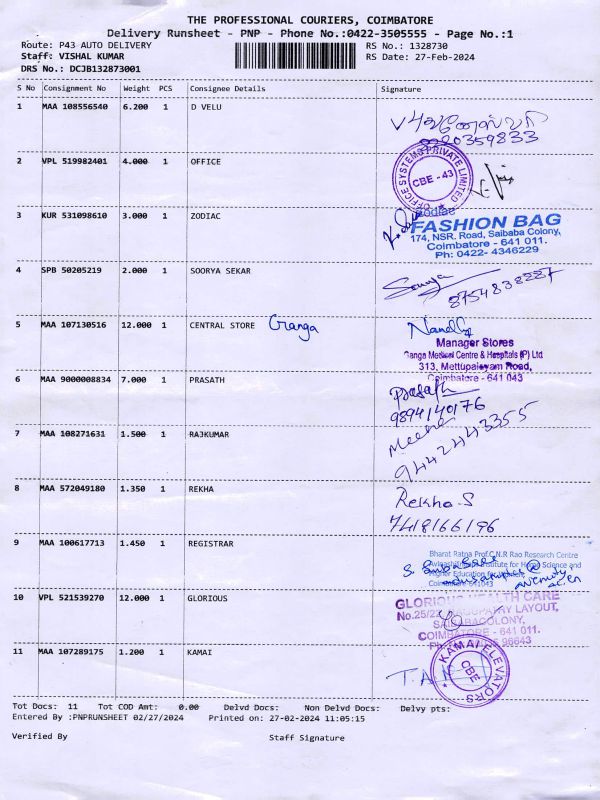 THE PROFESSIONAL COURIERS, COIMBATORE
Delivery Runsheet - PNP - Phone No.:0422-3505555 - Page No.:1
Route: P43 AUTO DELIVERY
RS No.: 1328730
Staff: VISHAL KUMAR
RS Date: 27-Feb-2024
DRS No.: DCJB132873001
S No Consignment No Weight PCS Consignee Details Signature
1 MAA 108556540 6.200 1 D VELU
359833
2 VPL 519982401 4.000 1 OFFICE
OFFICE SYSTEMS PRIVATE LIMITED
CBE - 43
3 KUR 531098610 3.000 1 ZODIAC
Zodiac
FASHION BAG
174, NSR. Road, Saibaba Colony,
Coimbatore - 641 011.
Ph: 0422- 4346229
4 SPB 50205219 2.000 1 SOORYA SEKAR
Soorya
8754838287
5 MAA 107130516 12.000 1 CENTRAL STORE Ganga
Manager Stores
Ganga Medical Centre & Hospitals (P) Ltd
313, Mettupalayam Road,
Coimbatore - 641 043
6 MAA 9000008834 7.000 1 PRASATH
Prasath
9894140176
7 MAA 108271631 1.500 1 RAJKUMAR
Meena
9442443355
8 MAA 572049180 1.350 1 REKHA
Rekha.S
7418166196
9 MAA 100617713 1.450 1 REGISTRAR
Bharat Ratna Prof.C.N.R Rao Research Centre
Institute for Home Science and
Higher Education for
10 VPL 521539270 12.000 1 GLORIOUS
GLORIOUS HEALTH CARE
No.25/22, LAYOUT,
SAIBABACOLONY,
COIMBATORE - 641 011.
96643
11 MAA 107289175 1.200 1 KAMAI
KAMAI ELEVATORS
CBE
Tot Docs: 11 Tot COD Amt: 0.00 Delvd Docs: Non Delvd Docs: Delvy pts:
Entered By :PNPRUNSHEET 02/27/2024 Printed on: 27-02-2024 11:05:15
Verified By Staff Signature